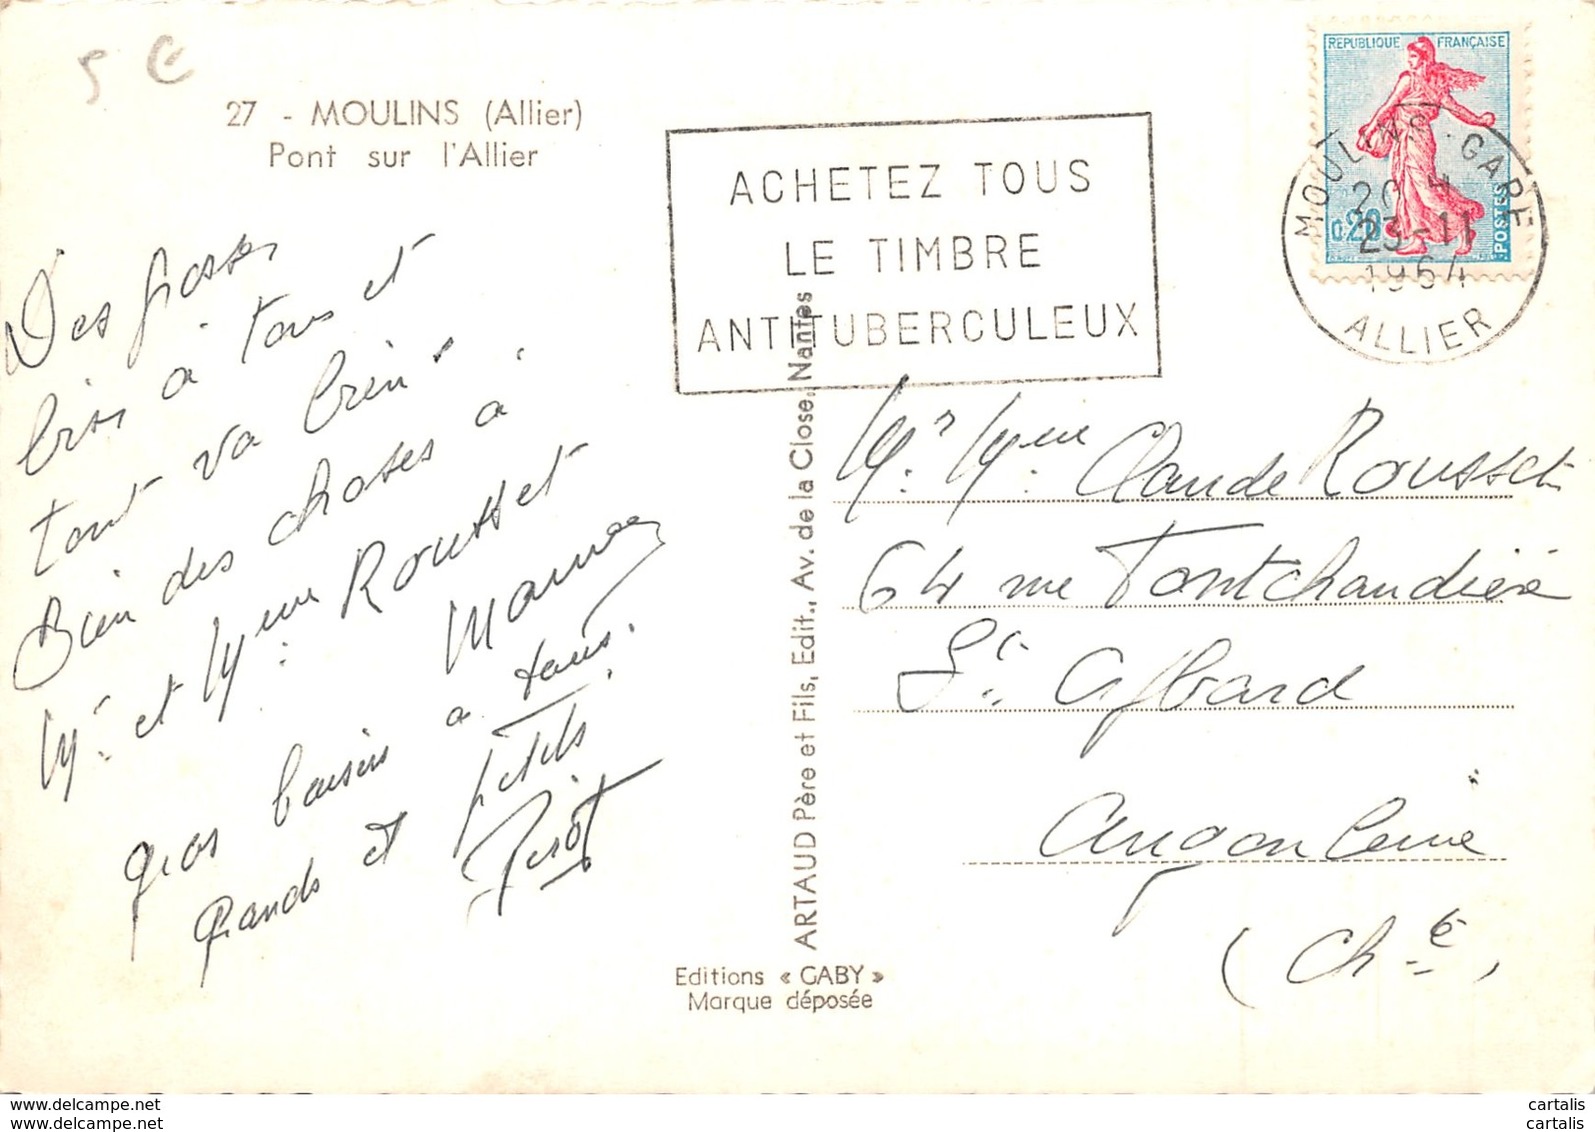 5 €
27 - MOULINS (Allier)
Pont sur l'Allier
ACHETEZ TOUS
LE TIMBRE
ANTITUBERCULEUX
REPUBLIQUE FRANÇAISE
0,20
POSTES
MOULINS-GARE
23-11
1964
ALLIER
Des grosses
bises à tous et
tout va bien
Bien des choses à
Mr et Mme Rousset
Maman
gros baisers à tous.
grands et petits
ARTAUD Père et Fils, Edit., Av. de la Close, Nantes
Editions « GABY »
Marque déposée
Mr. Mme Claude Rousset
64 rue Fontchaudière
St Cybard
Angoulême
(Chte)
www.cartalis.delcampe.net
www.cartalis.delcampe.net
cartalis
cartalis